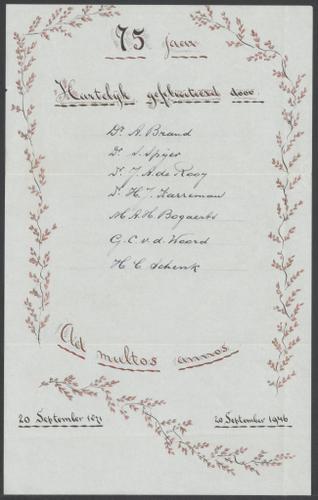 75 jaar
Hartelijk gefeliciteerd door:
Dr. A. Brand
Dr. S. Spijer
Dr. J. A. de Rooy
Dr. H. J. Karreman
M. A. H. Bogaerts
G. C. v. d. Woord
H. C. Schenk
Ad multos annos
20 September 1871
20 September 1946